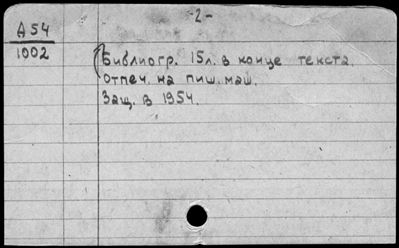 -2-
А54
1002
(Библиогр. 15л. в конце текста.
Отпеч. на пиш. маш.
Защ. в 1954.